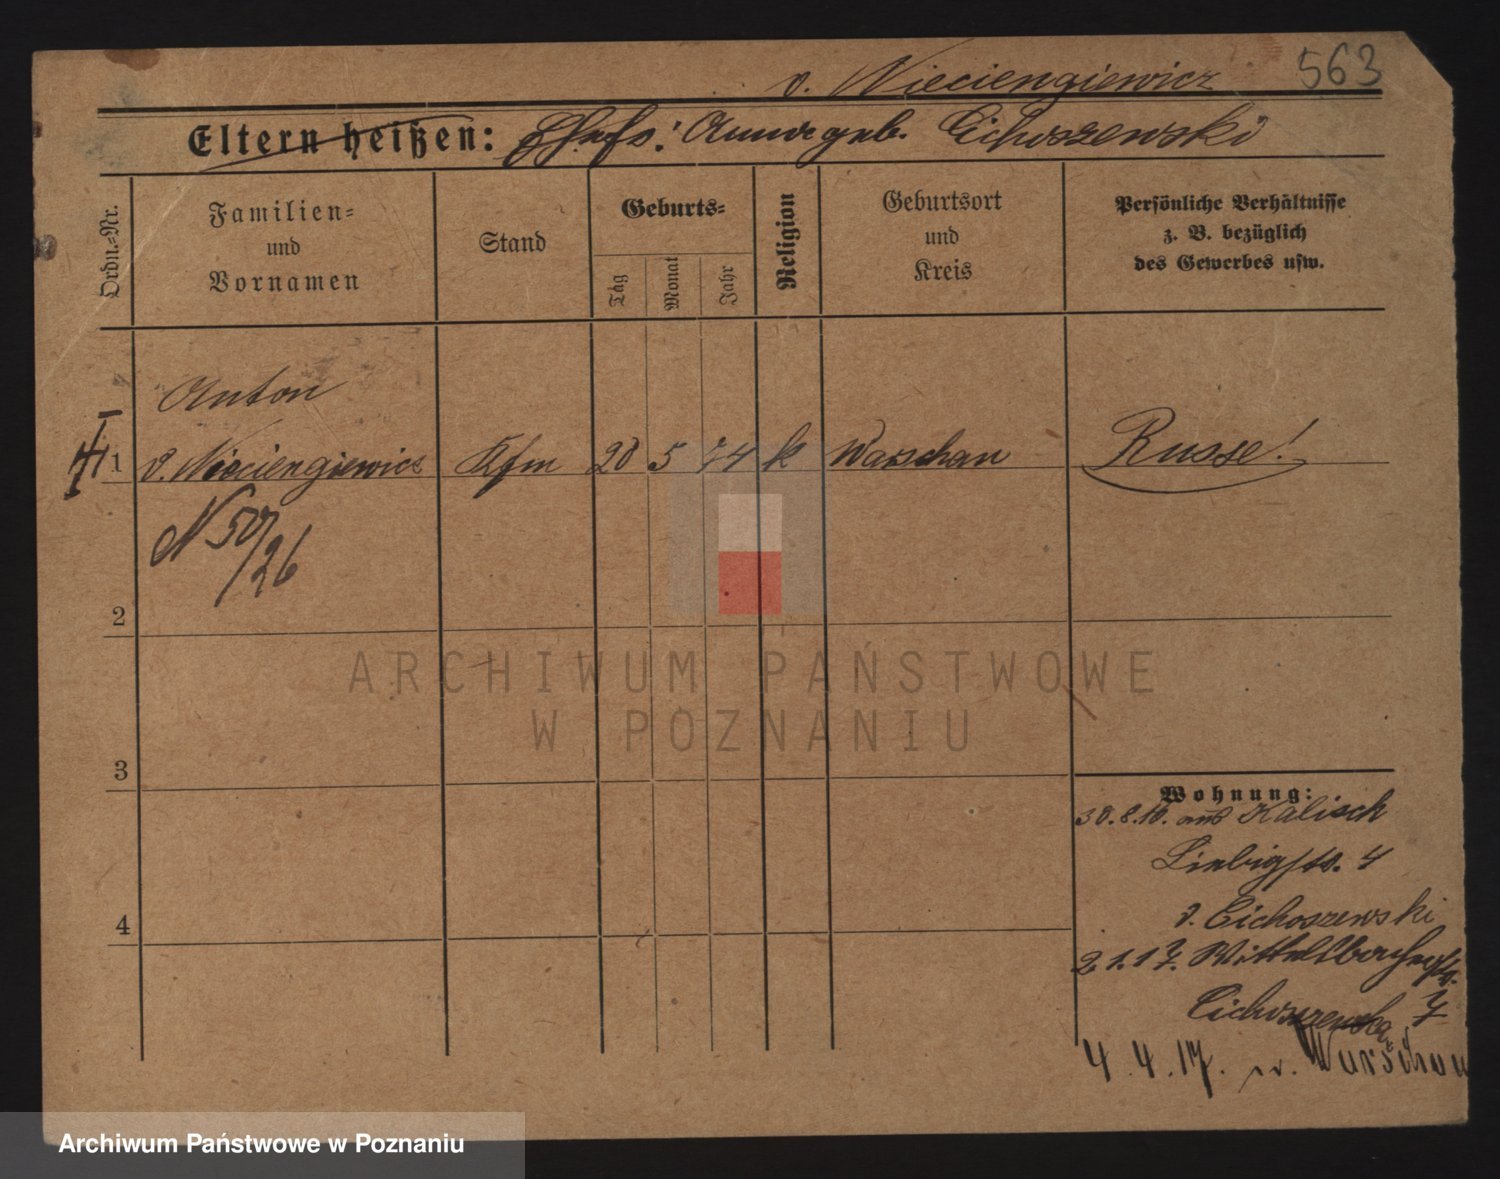 v. Nieciengiewicz 563
Eltern heißen: Ehefr: Anna geb. Cichoszewski
Ordn.=Nr.
Familien=
und
Vornamen
Stand
Geburts=
Tag
Monat
Jahr
Religion
Geburtsort
und
Kreis
Persönliche Verhältnisse
z. B. bezüglich
des Gewerbes usw.
Anton
1 v. Nieciengiewicz Kfm 20 5 74 k Warschau Russe!
N 507/26
2
ARCHIWUM PAŃSTWOWE
W POZNANIU
3
Wohnung:
30.8.16. aus Kalisch
Liebigstr. 4
b. Cichoszewski
4
2.1.17. Wittelsbacherstr. 7
Cichoszewska
4.4.17. n. Warschau
Archiwum Państwowe w Poznaniu